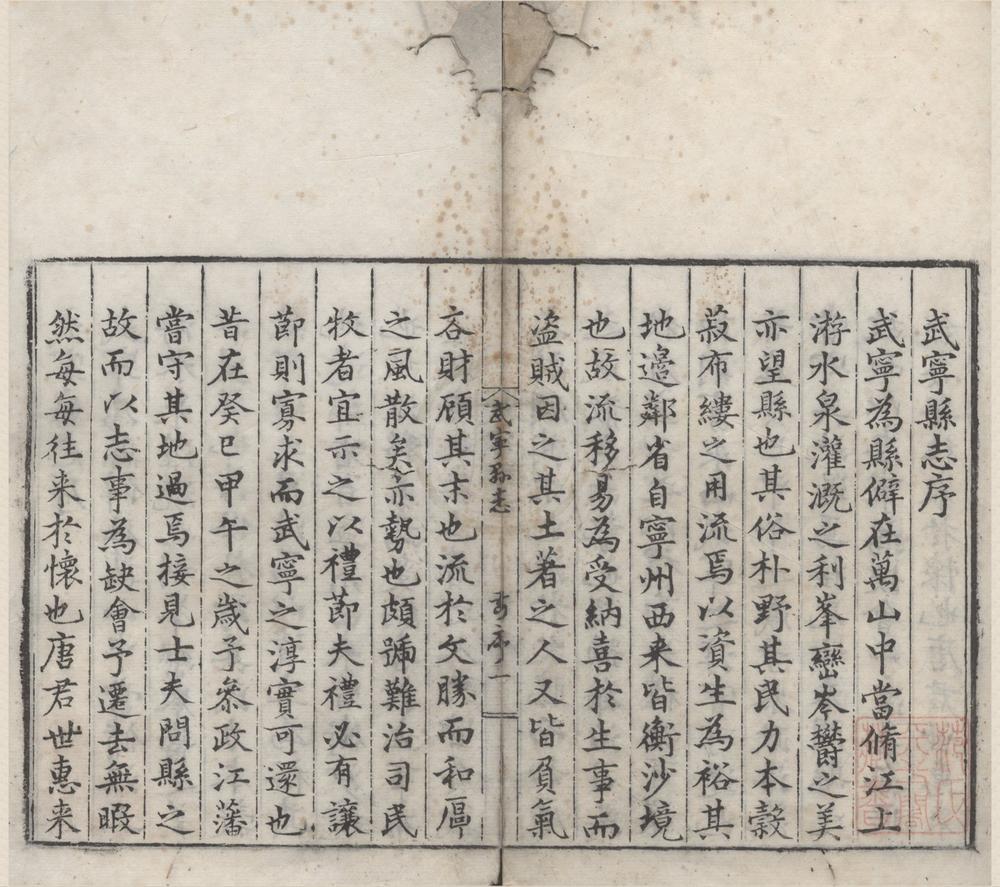 武寧縣志序
武寧為縣僻在萬山中當脩江上
游水泉灌溉之利峯巒岑欝之美
亦望縣也其俗朴野其民力本榖
菽布縷之用流焉以資生為裕其
地邉鄰省自寧州西来皆衡沙境
也故流移易為受納喜於生事而
盗賊因之其土著之人又皆負氣
武寧縣志
序一
吝財顧其末也流於文勝而和厚
之風散矣亦勢也頗號難治司民
牧者宜示之以禮莭夫禮必有讓
莭則寡求而武寧之淳實可還也
昔在癸巳甲午之歳予叅政江藩
嘗守其地過焉接見士夫問縣之
故而以志事為缺會予遷去無暇
然每每往来於懷也唐君世惠来